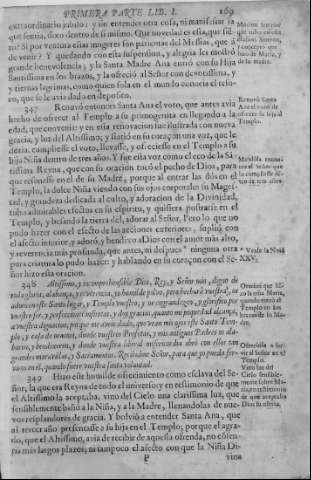 PRIMERA PARTE LIB. I. 169
extraordinario jubilo: y sin entender otra cosa, ni manifestar la
que sentia, dixo dentro de si mismo. Que novedad es esta, que siẽ
to? Si por ventura esta muger es sin
de venir? Y quedando con esta suspension, y alegria les mostrò
grande benevolencia; y la Santa Madre Ana entrò con su Hija
Santissima en los brazos, y la ofreciò al Señor con devotissima, y
tiernas lagrimas, como quien sola en el mundo conocia el teso-
ro, que se le avia dado en deposito.
347 Renovò entonces Santa Ana el voto, que antes avia
hecho de ofrecer al Templo a su primogenita en llegando a la
edad, que convenia: y en esta renovacion fue ilustrada con nueva
gracia, y luz del Altissimo; y sintiò en su coraçon una voz, que le
dezia; cumpliesse el voto, llevasse, y ofreciesse en el Templo a su
hija Niña dentro de tres años. Y fue esta voz como el eco de la Sã-
tissima Reyna, que con su oracion tocò el pecho de Dios, para
que resonasse en el de su Madre, porque al entrar las dos en el
Templo, la dulce Niña viendo con sus ojos corporales su Mages-
tad, y grandeza dedicada al culto, y adoracion de la Divinidad,
tuvo admirables efectos en su espiritu, y quisiera postrarse en el
Templo, y besando la tierra dèl, adorar al Señor. Pero lo que no
pudo hazer con el efecto de las acciones exteriores, supliò con
el afecto interior, y adorò, y bendixo a Dios con el amor mas alto,
y reverencia mas profunda, que antes, ni despues * ninguna otra
pura criatura lo pudo hazer: y hablando en su coraçon con el Se-
ñor hizo esta oracion.
348 Altissimo, y incomprehensible Dios, Rey, y Señor mio, digno de
toda gloria, alabança, y reverencia, yo humilde polvo, pero hechura vuestra, os
adoro en este Santo lugar, y Templo vuestro, y os engrandezco, y glorifico por
vuestro ser, y perfecciones infinitas, y doy gracias, quanto mi poquedad alcança,
a vuestra dignacion, porque me aveis dado, que vean mis ojos este Santo Tem-
plo, y casa de oracion, donde vuestros Profetas, y mis antiguos Padres os ala-
baron, y bendixeron, y donde vuestra liberal misericordia obrò con ellos tan
grandes maravillas, y Sacramentos. Recibidme Señor, para que yo pueda ser-
viros en èl, quando fuere vuestra santa voluntad.
349 Hizo este humilde ofrecimiento como esclava del Se-
ñor, la que era Reyna de todo el universo: y en testimonio de que
el Altissimo la aceptaba, vino del Cielo una clarissima luz, que
sensiblemente bañò a la Niña, y a la Madre, llenandolas de nue-
vos resplandores de gracia. Y bolviò a entender Santa Ana, que
al tercer año presentasse a su hija en el Templo; porque el agra-
do, que el Altissimo, avia de recibir de aquella ofrenda, no cõsen-
tia mas largos plazos, ni tampoco el afecto con que la Niña Di-
P
vina
Renovò Santa
Ana el voto de
ofrecer su hija al
Templo.
* Vease la Nota
XXV.